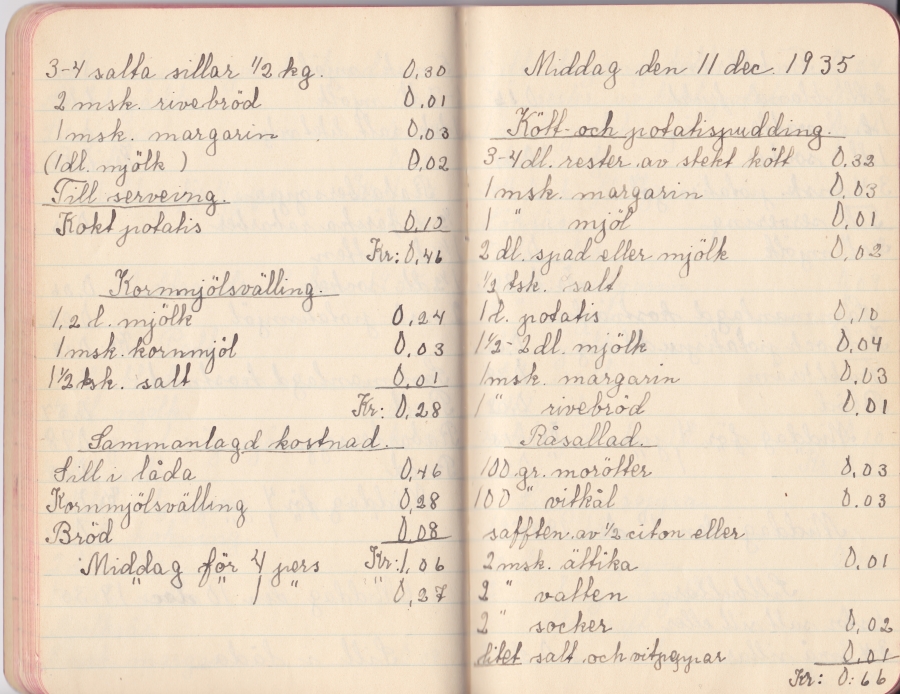 3-4 salta sillar 1/2 kg. 0,30
2 msk. rivebröd 0,01
1 msk. margarin 0,03
(1 dl. mjölk ) 0,02
Till serveing.
Kokt potatis 0,10
Kr: 0,46
Kornmjölsvälling.
1,2 l. mjölk 0,24
1 msk. kornmjöl 0,03
1 1/2 tsk. salt 0,01
Kr: 0,28
Sammanlagd kostnad.
Sill i låda 0,46
Kornmjölsvälling 0,28
Bröd 0,08
Middag för 4 pers Kr: 1,06
" " 1 " " 0,27
Middag den 11 dec. 1935
Kött- och potatispudding.
3-4 dl. rester av stekt kött 0.32
1 msk. margarin 0.03
1 " mjöl 0,01
2 dl. spad eller mjölk 0,02
1/2 tsk. salt
1 l. potatis 0,10
1 1/2-2 dl. mjölk 0.04
1 msk. margarin 0,03
1 " rivebröd 0,01
Råsallad.
100 gr. morötter 0,03
100 " vitkål 0,03
safften av 1/2 citon eller
2 msk. ättika 0,01
2 " vatten
2 " socker 0,02
litet salt och vitpeppar 0,01
Kr: 0:66